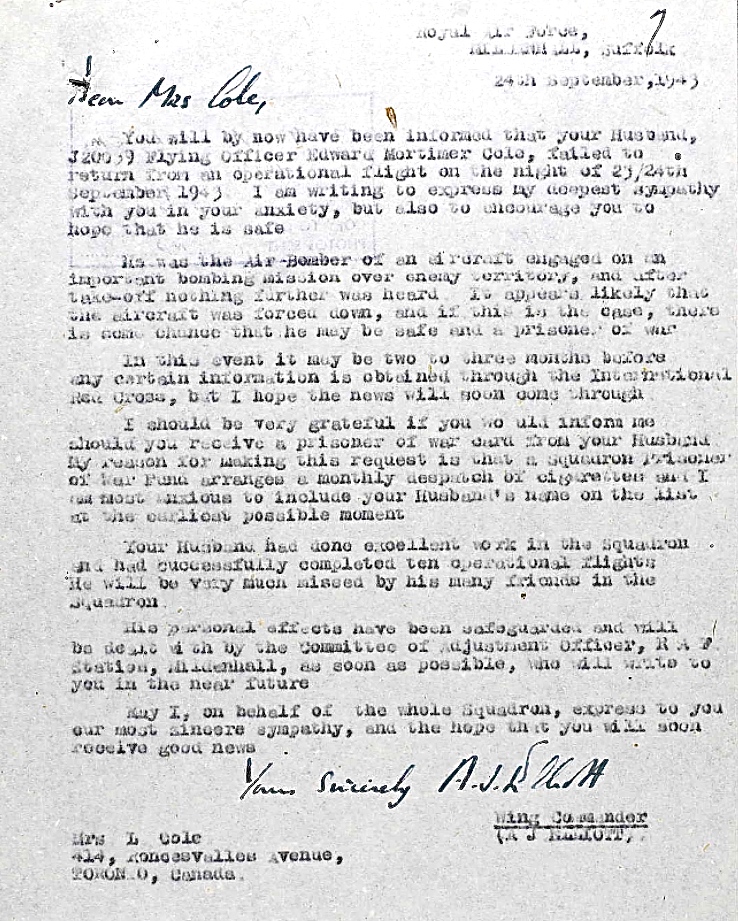 Royal Air Force,
MILDENHALL, Suffolk
24th September, 1943
Dear Mrs Cole,
You will by now have been informed that your Husband,
J20039 Flying Officer Edward Mortimer Cole, failed to
return from an operational flight on the night of 23/24th
September 1943. I am writing to express my deepest sympathy
with you in your anxiety, but also to encourage you to
hope that he is safe
He was the Air-Bomber of an aircraft engaged on an
important bombing mission over enemy territory, and after
take-off nothing further was heard It appears likely that
the aircraft was forced down, and if this is the case, there
is some chance that he may be safe and a prisoner of war
In this event it may be two to three months before
any certain information is obtained through the International
Red Cross, but I hope the news will soon come through
I should be very grateful if you wo uld inform me
should you receive a prisoner of war card from your Husband
My reason for making this request is that a Squadron Prisoner
of War Fund arranges a monthly despatch of cigarettes and I
am most anxious to include your Husband's name on the list
at the earliest possible moment
Your Husband had done excellent work in the Squadron
and had successfully completed ten operational flights
He will be very much missed by his many friends in the
Squadron
His personal effects have been safeguarded and will
be dealt with by the Committee of Adjustment Officer, R A F
Station, Mildenhall, as soon as possible, who will write to
you in the near future
May I, on behalf of the whole Squadron, express to you
our most sincere sympathy, and the hope that you will soon
receive good news
Yours Sincerely R.J. Elliott
Wing Commander
(R J ELLIOTT),
Mrs L Cole
414, Roncesvalles Avenue,
TORONTO, Canada.